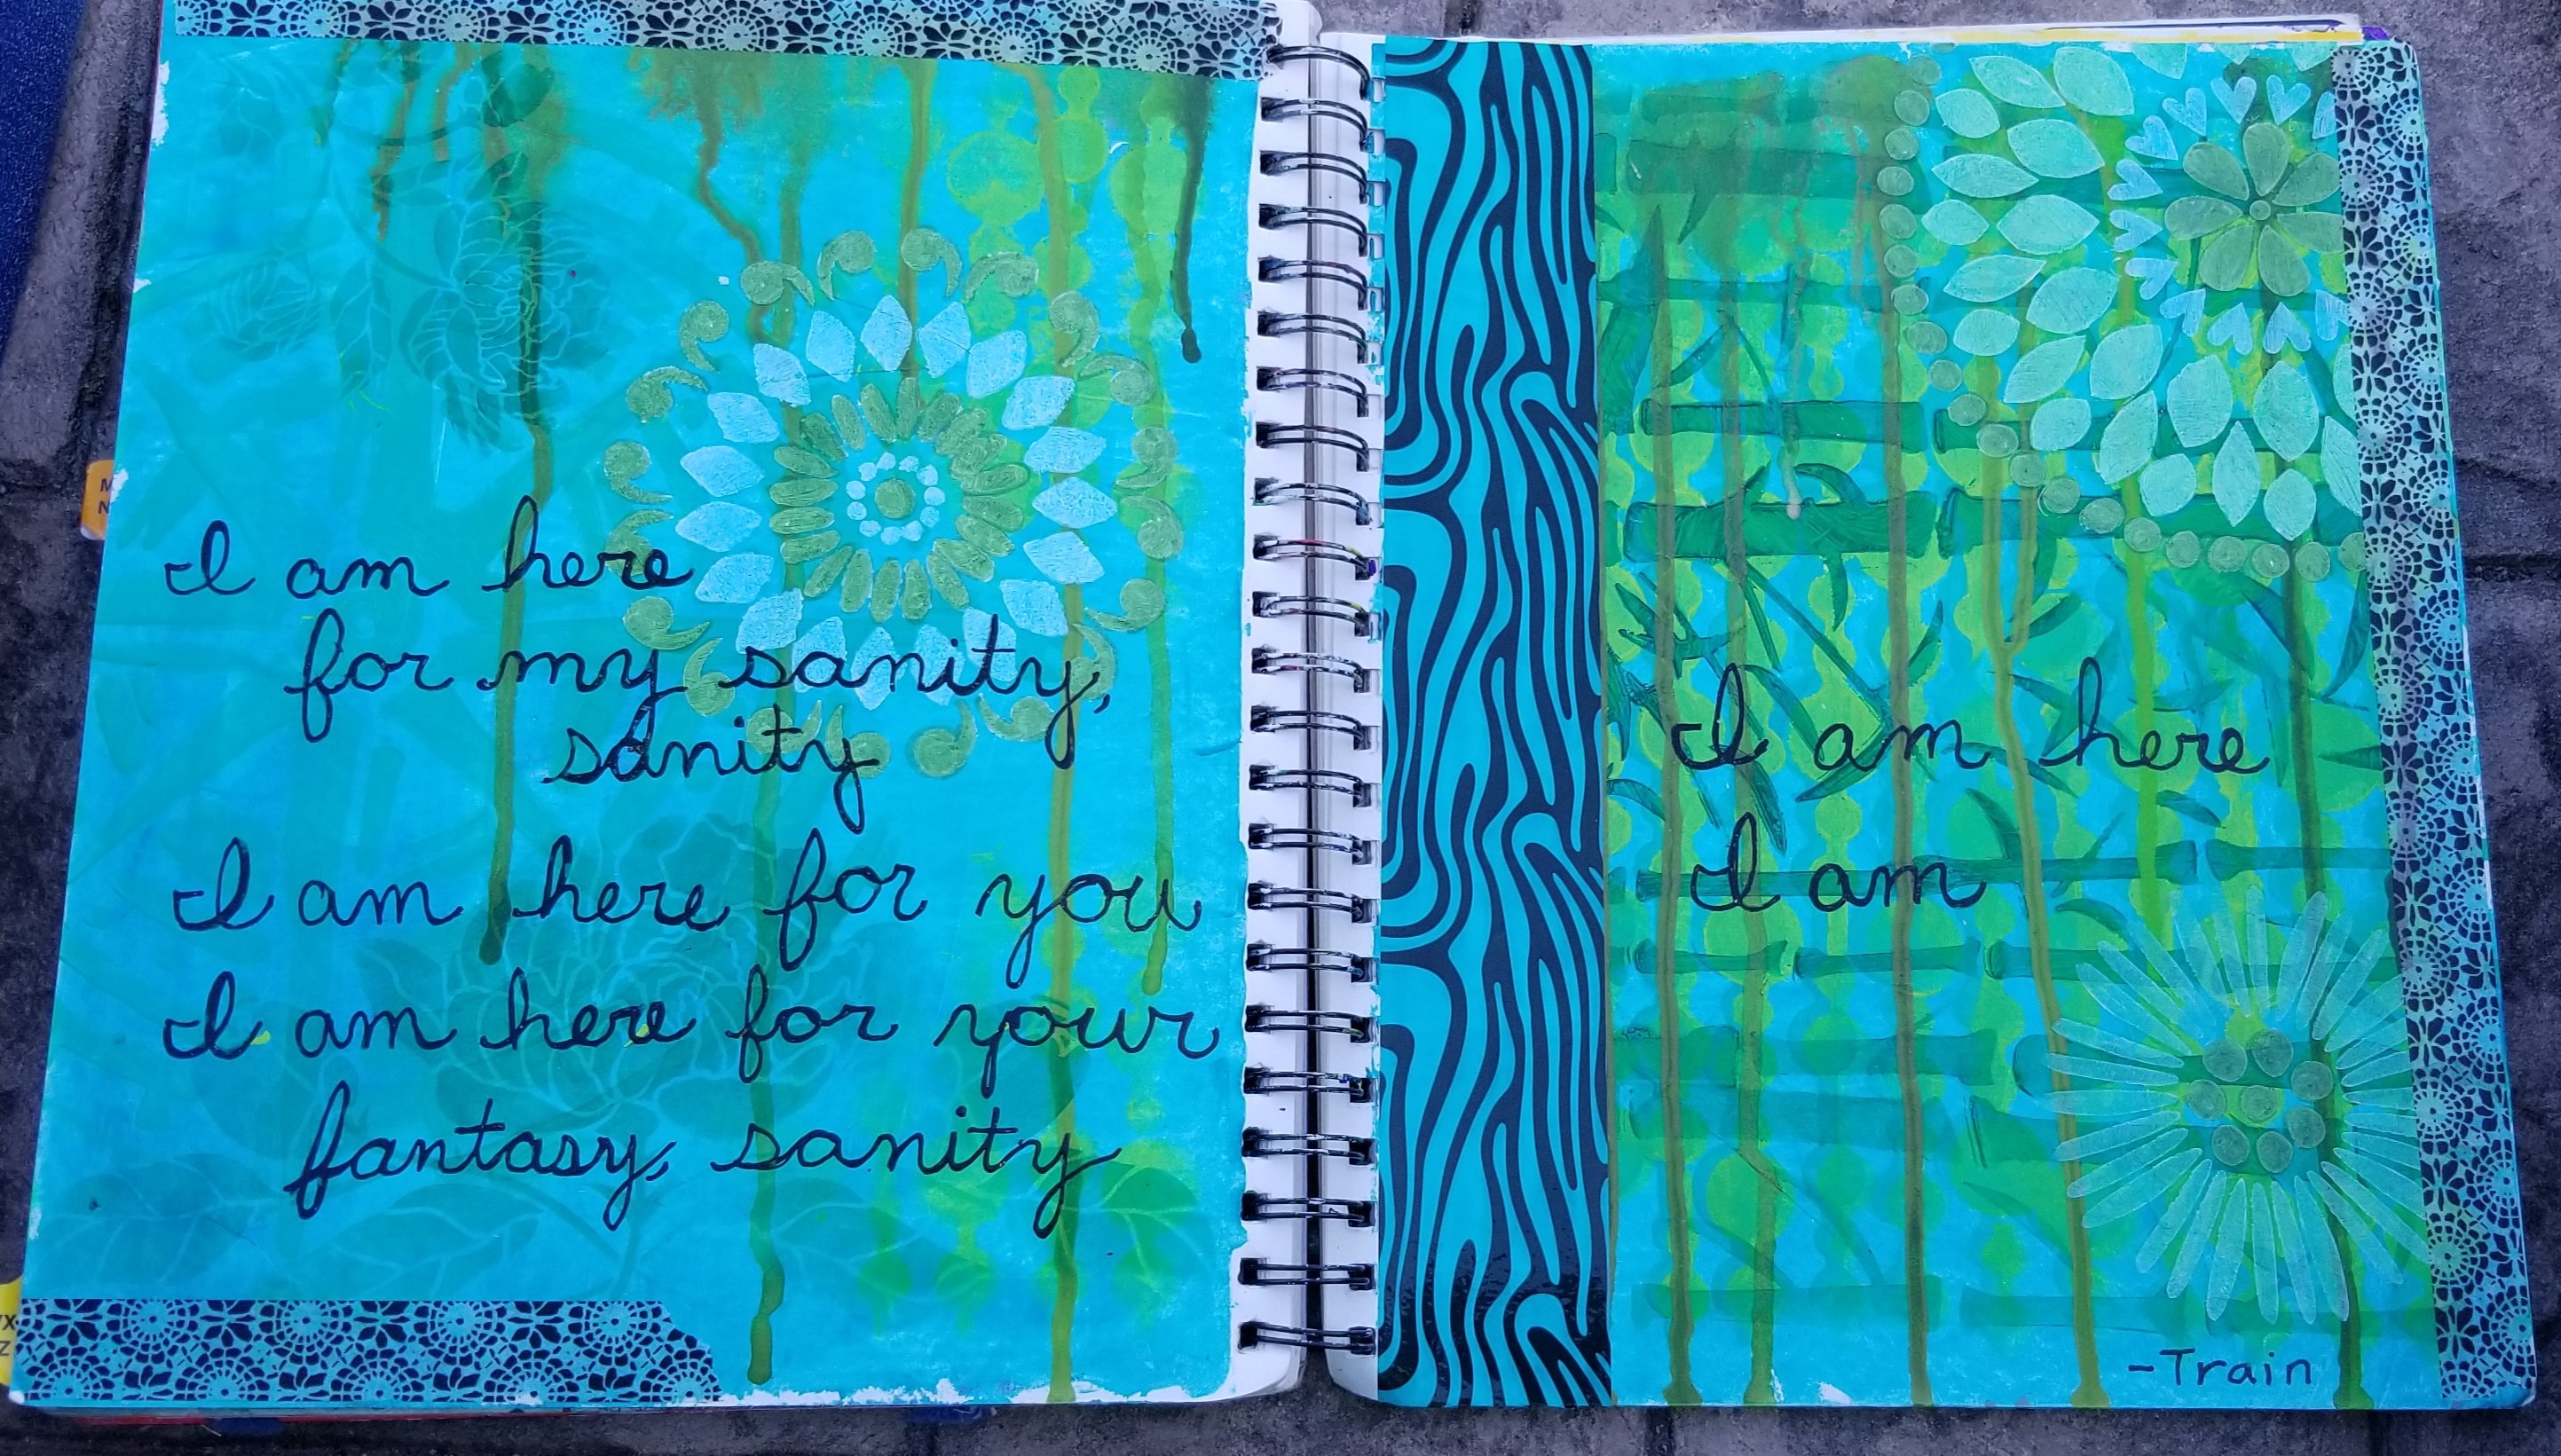 I am here
for my sanity,
sanity
I am here for you
I am here for your
fantasy, sanity
I am here
I am
-Train